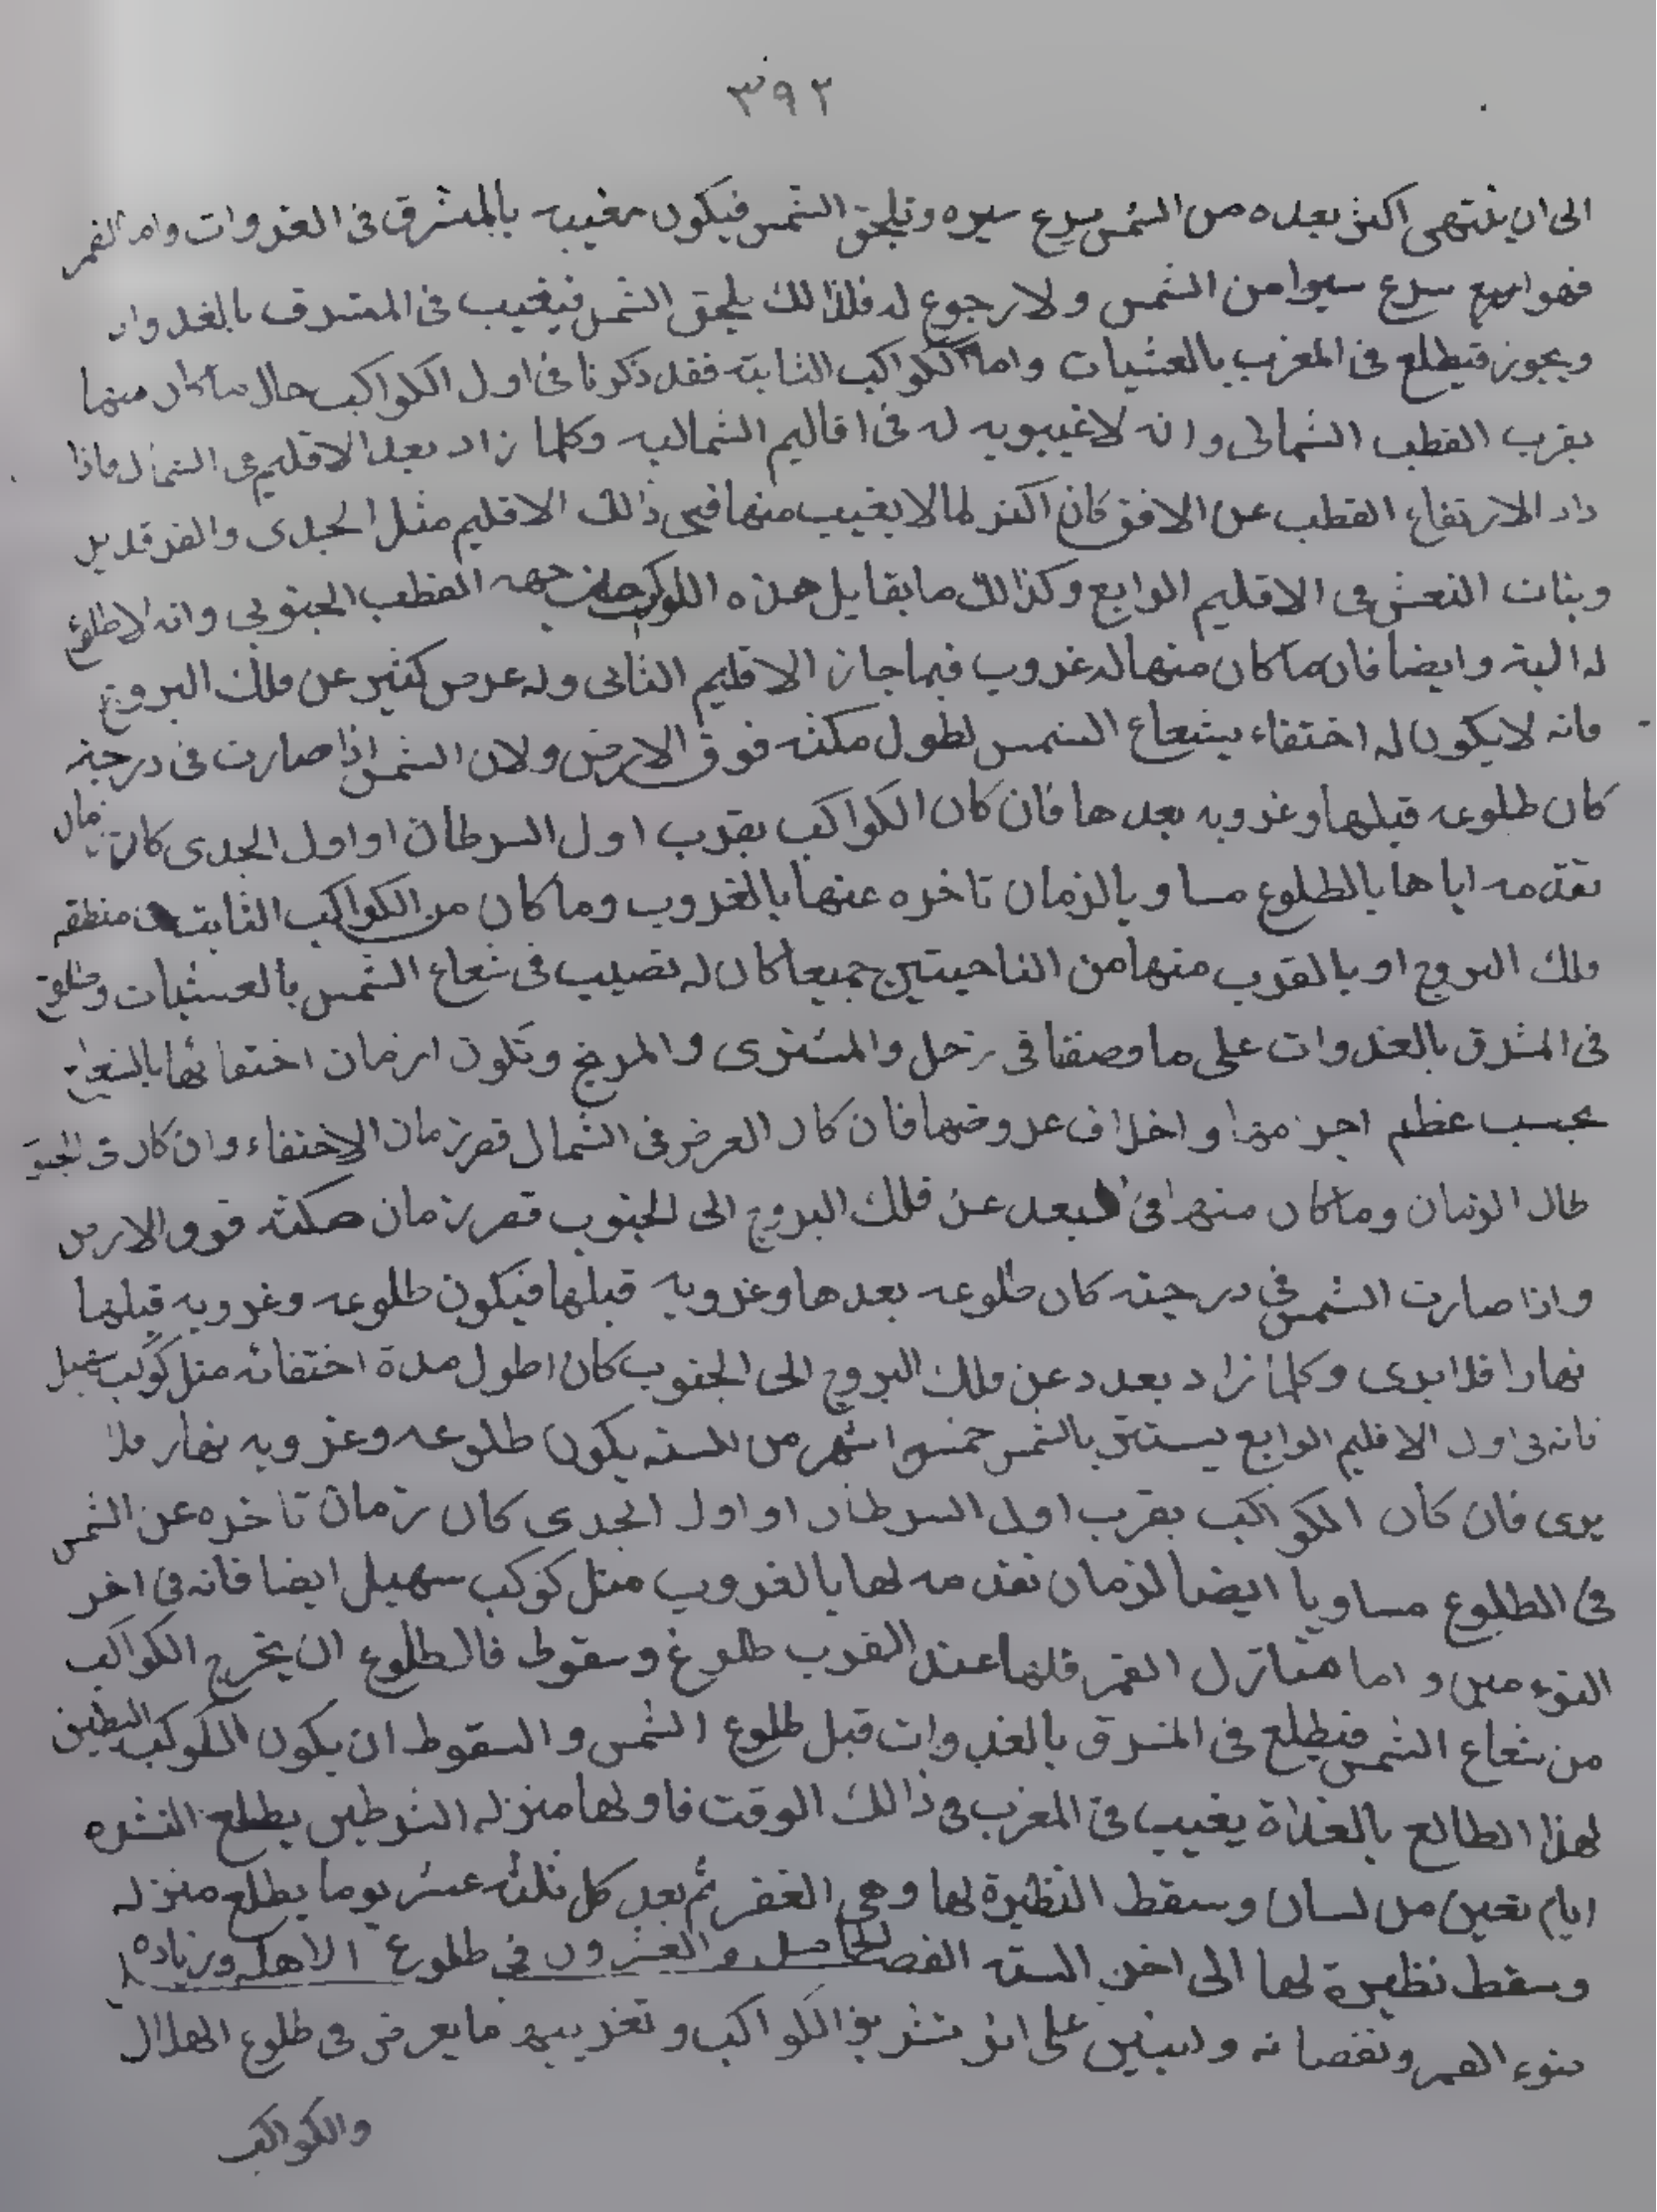 ٣٩٢
الى ان ينتهى اكثر بعده من الشمس يسرع سيره ويلحق الشمس فيكون مغيبه بالمشرق فى الغدوات واما القمر
فهو اسرع سيرا من الشمس ولا رجوع له فلذالك يلحق الشمس فيغيب فى المشرق بالغدوات
ويجوز فيطلع فى المغرب بالعشيات واما الكواكب الثابته فقد ذكرنا فى اول الكواكب حال ما كان منها
بقرب القطب الشمالى وانه لا غيبوبه له فى اقاليم الشماليه وكلما زاد بعد الاقليم فى الشمال فاذا
داد الارتفاع القطب عن الافق كان اكثر لما لا يغيب منها فى ذالك الاقليم مثل الجدى والفرقدين
وبنات النعش فى الاقليم الرابع وكذالك ما يقابل هذه الكواكب من جهه القطب الجنوبى وانه لا طلوع
له البته وايضا فان ما كان منها له غروب فيما جاز الاقليم الثانى وله عرض كثير عن فلك البروج
فانه لا يكون له اختفاء بشعاع الشمس لطول مكثه فوق الارض ولان الشمس اذا صارت فى درجته
كان طلوعه قبلها وغروبه بعدها فان كان الكواكب بقرب اول السرطان او اول الجدى كان زمان
تقدمه اياها بالطلوع مساو بالزمان تاخره عنها بالغروب وما كان من الكواكب الثابته منطقه
فلك البروج او بالقرب منها من الناحيتين جميعا كان له نصيب فى شعاع الشمس بالعشيات وطلوع
فى المشرق بالغدوات على ما وصفنا فى زحل والمشترى والمريخ وتكون ازمان اختفائها بالشعاع
بحسب عظم اجرامها واخلاف عروضها فان كان العرض فى الشمال قصر زمان الاختفاء وان كان فى الجنوب
طال الزمان وما كان منها فى البعد عن فلك البروج الى الجنوب قصر زمان مكثه فوق الارض
واذا صارت الشمس فى درجته كان طلوعه بعدها وغروبه قبلها فيكون طلوعه وغروبه قبلها
نهارا فلا يرى وكلما زاد بعده عن فلك البروج الى الجنوب كان اطول مدة اختفائه مثل كوكب سهيل
فانه فى اول الاقليم الرابع يستتر بالشمس خمسه اشهر من السنه يكون طلوعه وغروبه نهار فلا
يرى فان كان الكواكب بقرب اول السرطان او اول الجدى كان زمان تاخره عن الشمس
فى الطلوع مساويا ايضا لزمان تقدمه لها بالغروب مثل كوكب سهيل ايضا فانه فى اخر
التوءمين و اما منازل القمر فلها عند العرب طلوع وسقوط فالطلوع ان يخرج الكواكب
من شعاع الشمس فيطلع فى المشرق بالغدوات قبل طلوع الشمس والسقوط ان يكون الكوكب النظير
لهذا الطالع بالغداة يغيب فى المغرب فى ذالك الوقت فاولها منزله الشرطين يطلع لعشره
ايام تمضين من نيسان وسقط النظيرة لها وهى الغفر ثم بعد كل ثلثه عشر يوما يطلع منزله
وسقط نظيرة لها الى اخر السنه الفصل الخامس والعشرون فى طلوع الاهله وزياده
ضوء القمر ونقصانه ولنبين على اثر تشريق الكواكب وتغريبها ما يعرض فى طلوع الهلال
والكواكب